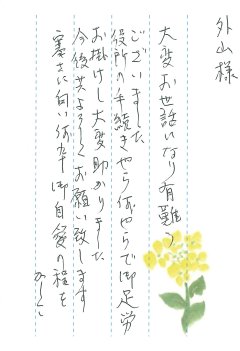 外山様
大変お世話になり有難う
ございました
役所の手続きやら何やらで御足労
お掛けし大変助かりました
今後共よろしくお願い致します
寒さに向い何卒御自愛の程を
かしこ